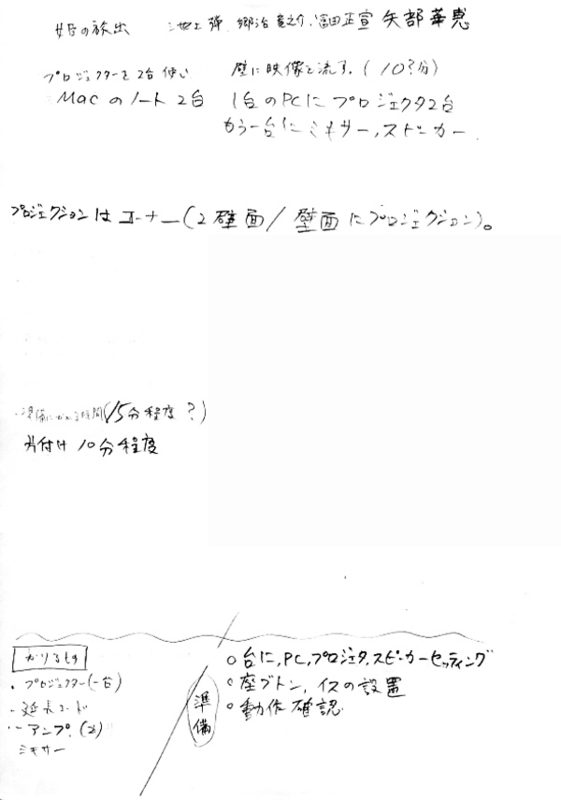 の放出 池上 郷治竜之介、富田正宣 矢部華恵
プロジェクターを2台使い 壁に映像を流す。(10?分)
Macのノート2台 1台のPCにプロジェクタ2台
もう一台にミキサー、スピーカー
プロジェクションはコーナー(2壁面/壁面にプロジェクション)。
・準備にかかる時間(15分程度?)
片付け10分程度
かりるもの
・プロジェクター(一台)
・延長コード
・アンプ。
ミキサー
準備
○台に、PC、プロジェクタ、スピーカーセッティング
○座ブトン、イスの設置
○動作確認